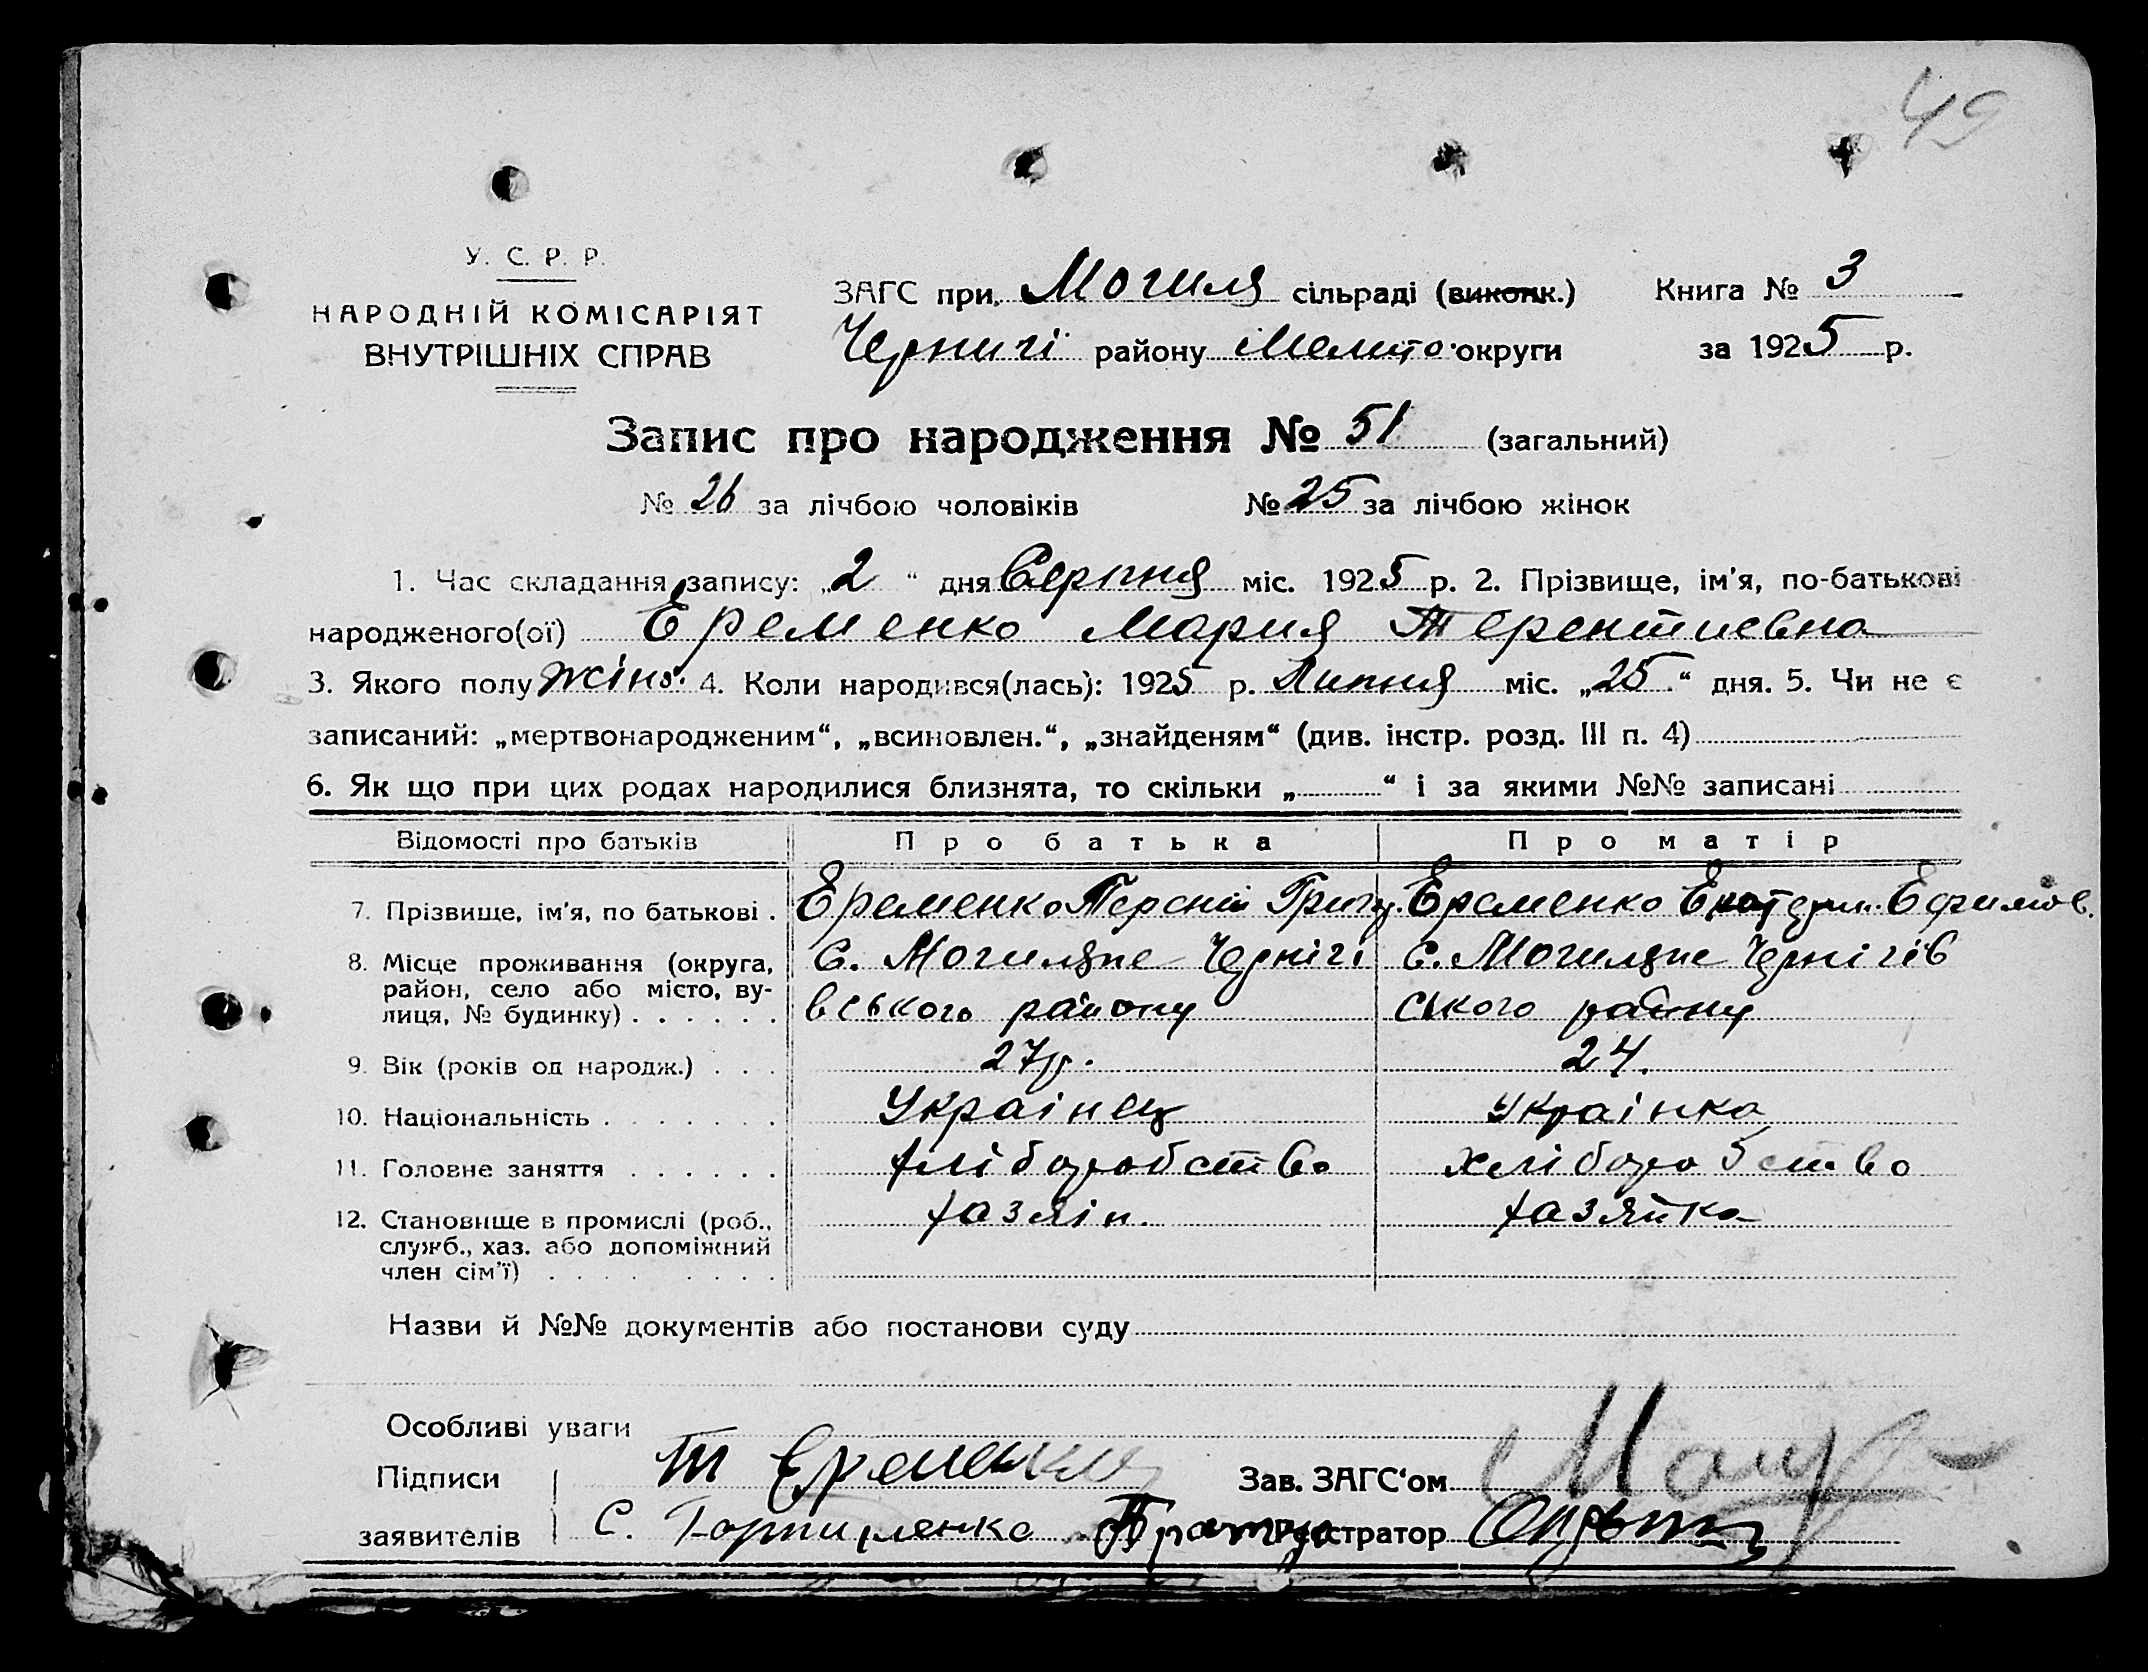 49
У. С. Р. Р.
НАРОДНІЙ КОМІСАРІЯТ
ВНУТРІШНІХ СПРАВ
ЗАГС при Могиля сільраді (виконк.) Книга № 3
Черниги району Мелито. округи за 1925 р.
Запис про народження № 51 (загальний)
№ 26 за лічбою чоловіків № 25 за лічбою жінок
1. Час складання запису: „2“ дня Серпня міс. 1925 р. 2. Прізвище, ім'я, по-батькові
народженого(ої) Еременко Мария Терентиевна
3. Якого полу жіно. 4. Коли народився(лась): 1925 р. Липня міс. „25“ дня. 5. Чи не є
записаний: „мертвонародженим“, „всиновлен.“, „знайденям“ (див. інстр. розд. III п. 4)
6. Як що при цих родах народилися близнята, то скільки „ “ і за якими №№ записані
Відомості про батьків Про батька Про матір
7. Прізвище, ім'я, по батькові . Еременко Григ. Еременко Ефимов.
8. Місце проживання (округа, район, село або місто, вулиця, № будинку) . . . . . . с. Могиляне Черніги
вського району
с. Могиляне Чернігів
ського району
9. Вік (років од народж.) . . . 27р. 24.
10. Національність . . . . . . . Украінец Украінка
11. Головне заняття . . . . . . хліборобство хліборобство
12. Становище в промислі (роб., служб., хаз. або допоміжний член сім'ї) . . . . . . . . . хазяін. хазяйка
Назви й №№ документів або постанови суду
Особливі уваги
Підписи Т Еременко Зав. ЗАГС'ом
заявителів С. Реєстратор